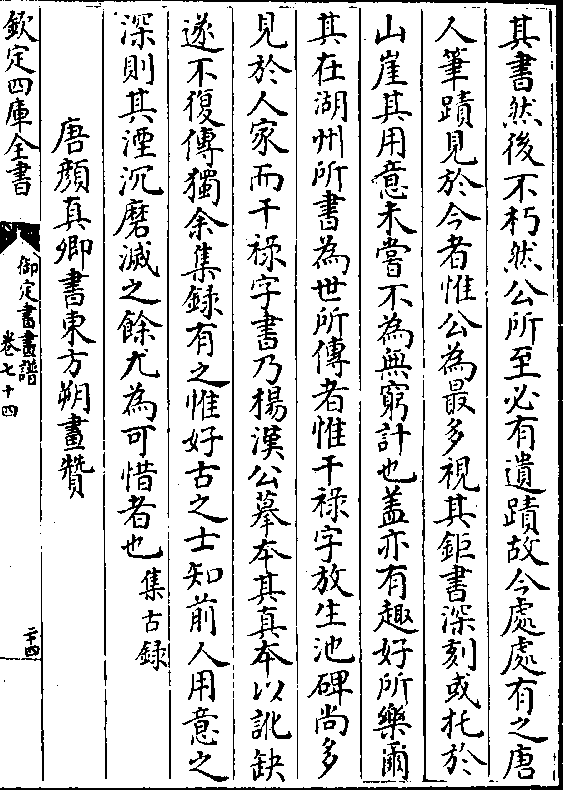 其書然後不朽然公所至必有遺蹟故今處處有之唐
人筆蹟見於今者惟公為最多視其鉅書深刻或托於
山崖其用意未嘗不為無窮計也盖亦有趣好所樂爾
其在湖州所書為世所傳者惟干禄字放生池碑尚多
見於人家而干禄字書乃楊漢公摹本其真本以訛缺
遂不復傳獨余集録有之惟好古之士知前人用意之
深則其湮沉磨滅之餘尤為可惜者也集古録
唐顔真卿書東方朔畫贊
欽定四庫全書
御定書畫譜
卷七十四
二十四